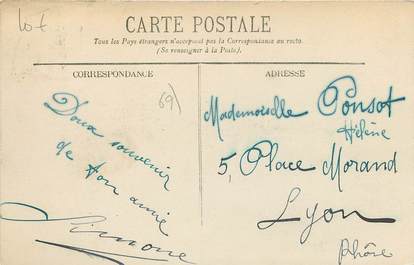 10f
CARTE POSTALE
Tous les Pays étrangers n'acceptent pas la Correspondance au recto.
(Se renseigner à la Poste).
CORRESPONDANCE
69)
Doux souvenir
de ton amie
Simone
ADRESSE
Mademoiselle Ponsot
Hélène
5, Place Morand
Lyon
Rhône